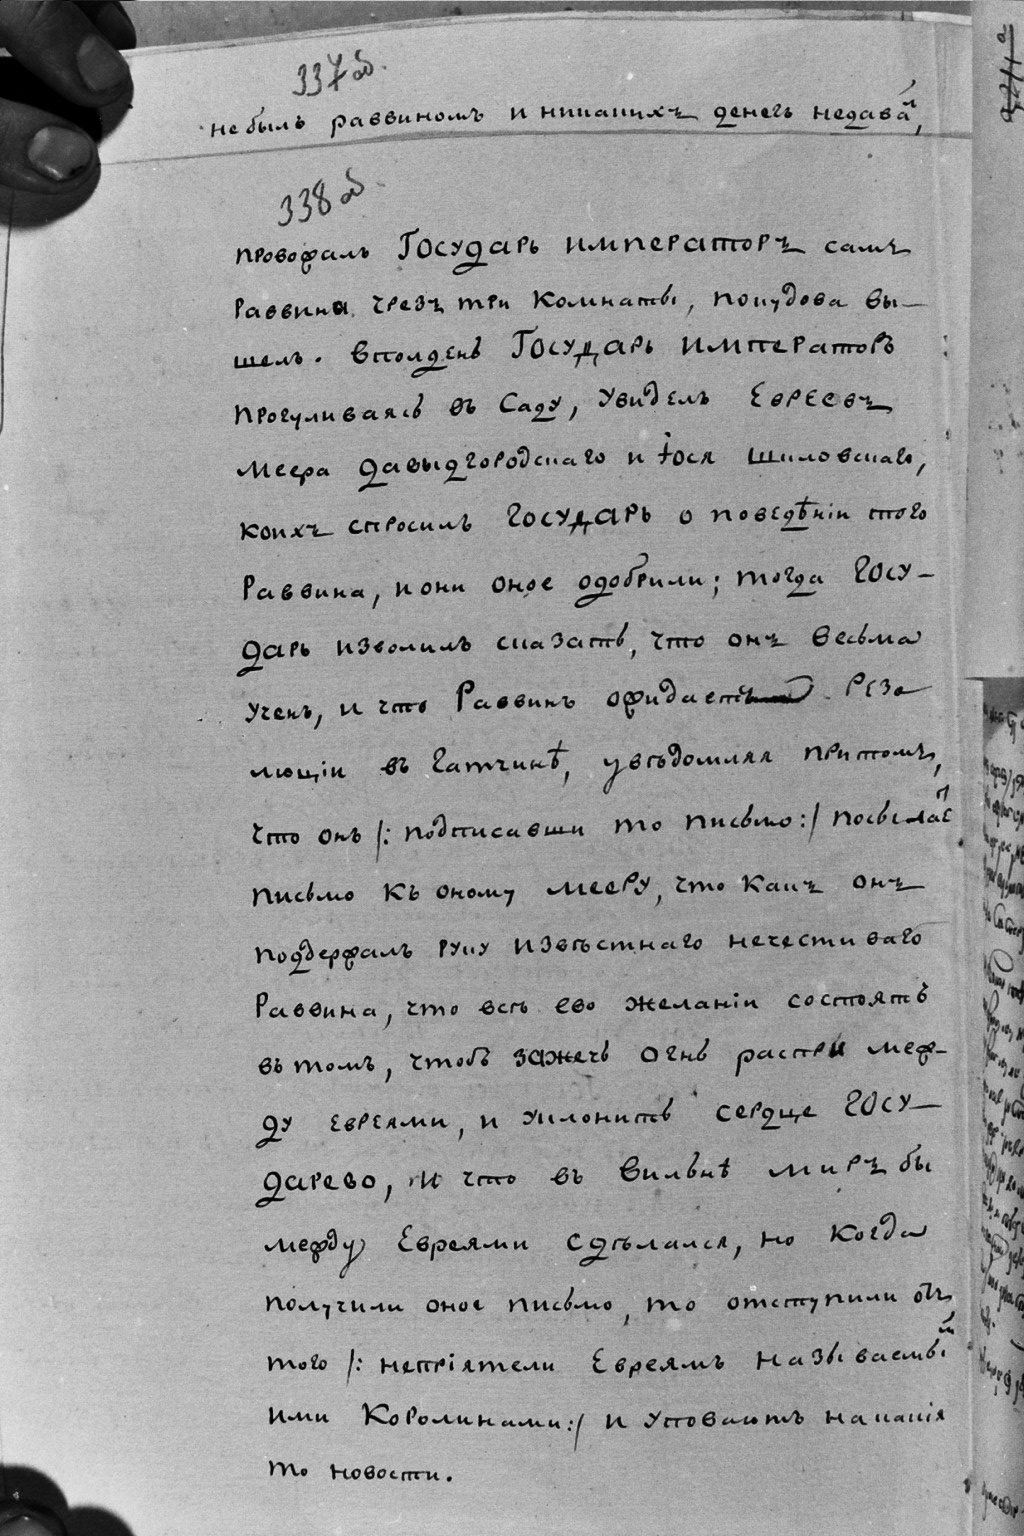 337 а.
не былъ раввиномъ и никакихъ денегъ недавал,
338 а.
провожалъ Государь императоръ самъ
раввина чрезъ три комнаты, покудова вы-
шелъ. Вполдень Государь императоръ
прогуливаясь въ Саду, увиделъ Евреевъ
меера давыдгородскаго и Іося шиловскаго,
коихъ спросилъ государь о поведѣніи того
Раввина, и они оное одобрили; тогда госу-
дарь изволилъ сказать, что онъ весьма
ученъ, и что Раввинъ ожидаетъ резо
люціи въ гатчинѣ, увѣдомляя притомъ,
что онъ /: подписавши то письмо :/ посылает
письмо къ оному мееру, что какъ онъ
подержалъ руку извѣстнаго нечестиваго
Раввина, что всѣ ево желаніи состоятъ
въ томъ, чтобъ зажечь огнь распри меж-
ду евреями, и уклонить сердце госу-
дарево, и что въ Вильнѣ миръ бы
между Евреями сдѣлался, но когда
получили оное письмо, то отступили отъ
того /: непріятели Евреямъ называемы
ими Королинами :/ и уповаютъ на какія
то новости.